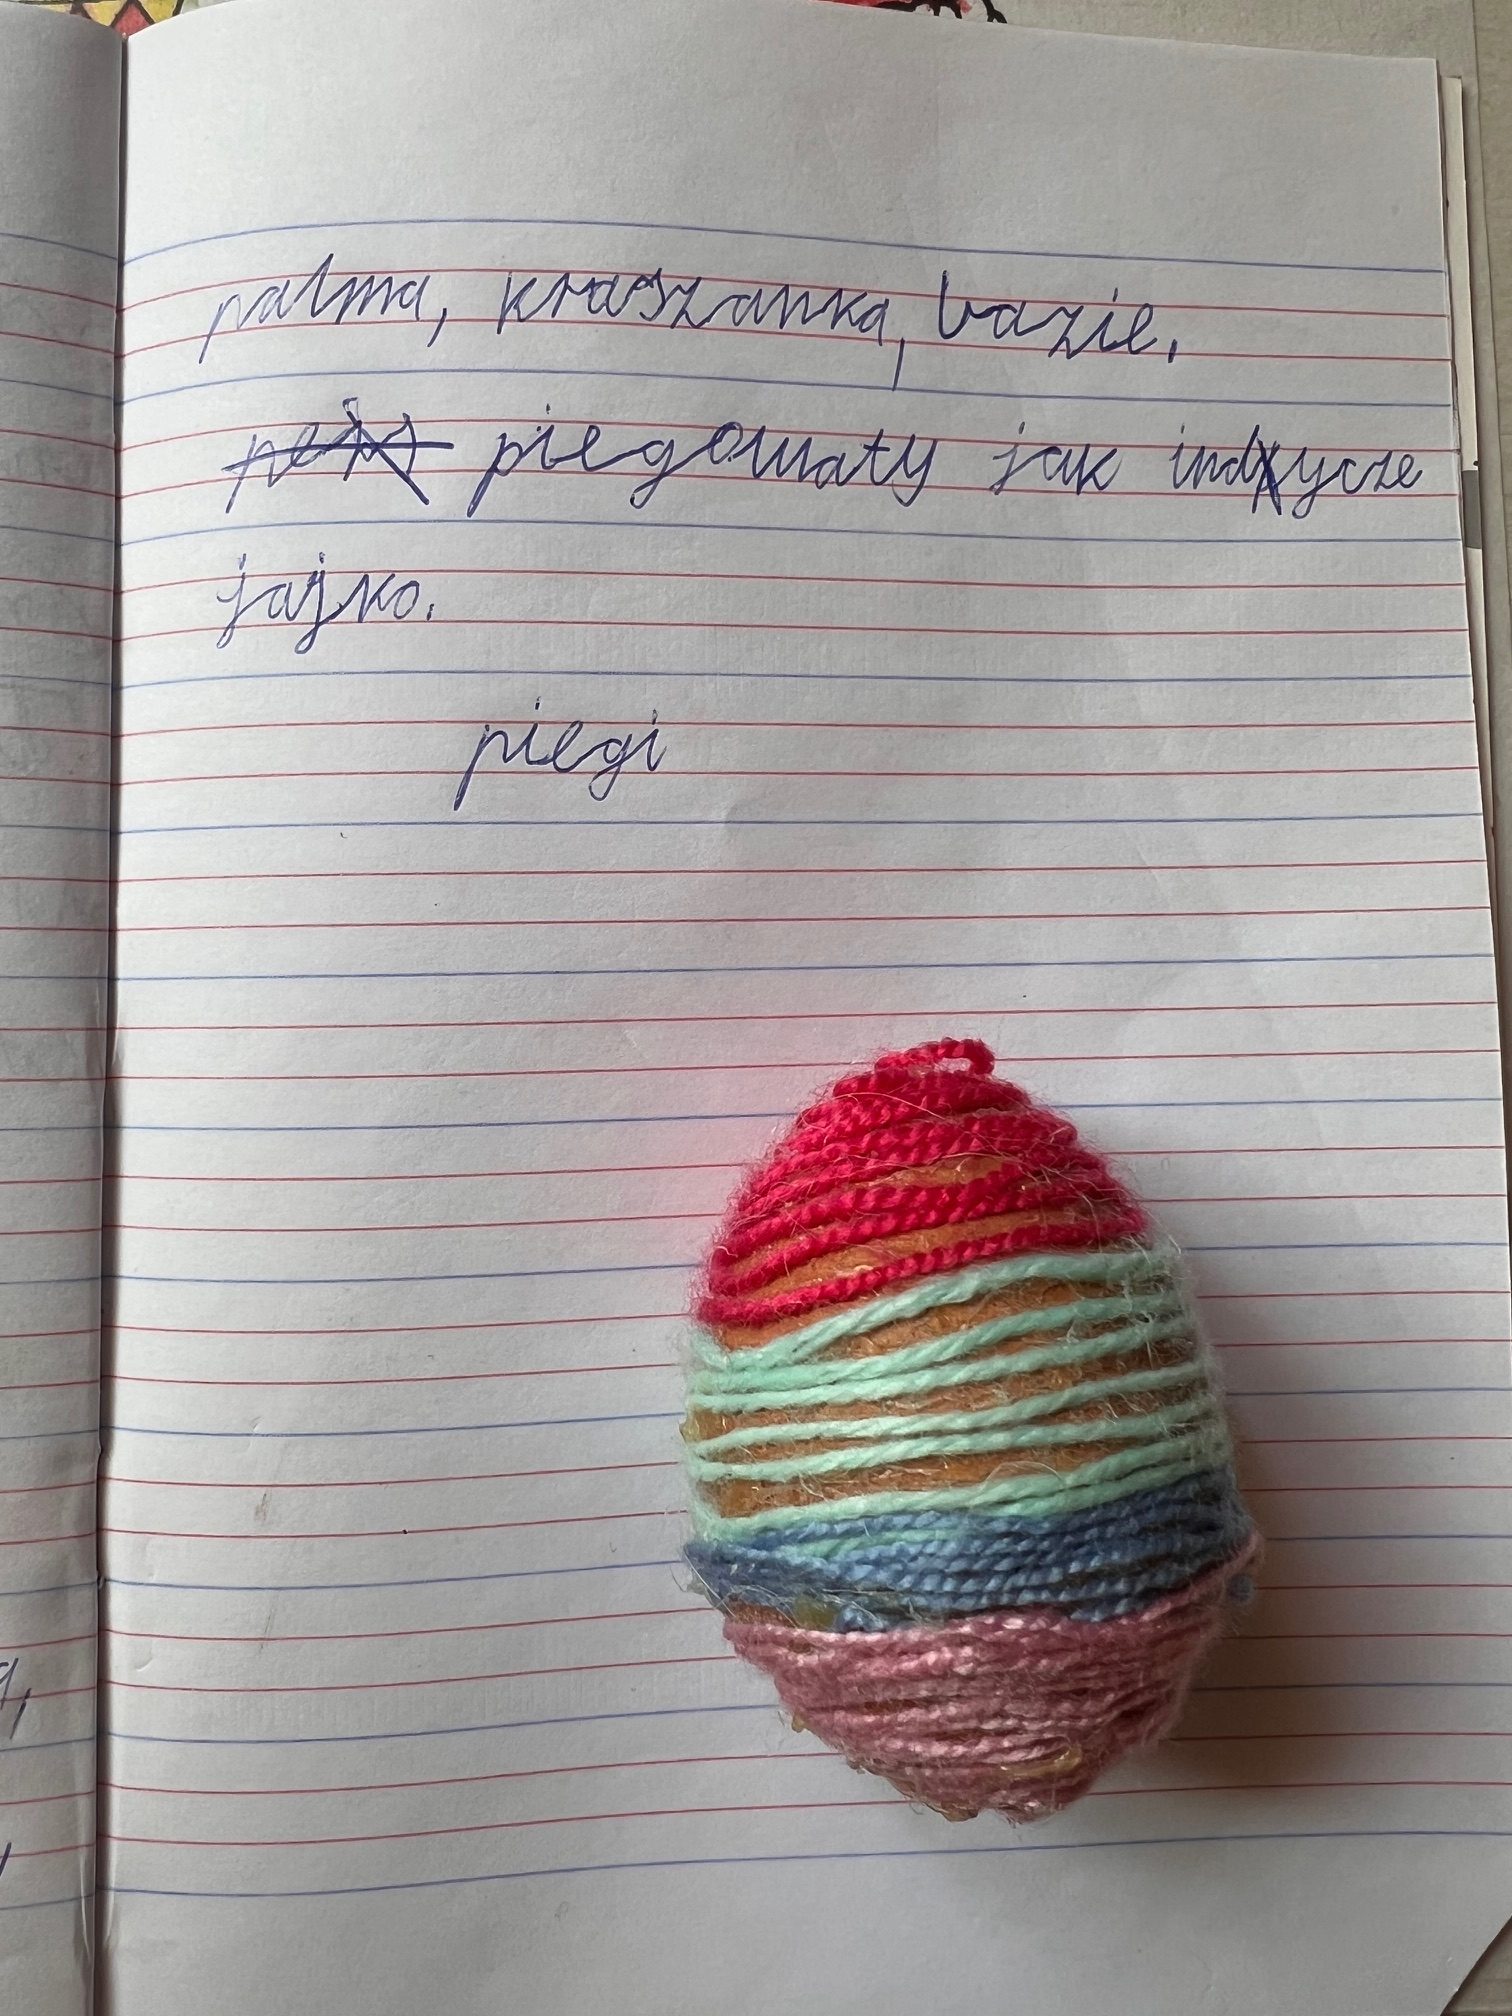 palma, kraszanka, bazie.
piegowaty jak indycze
jajko.
piegi